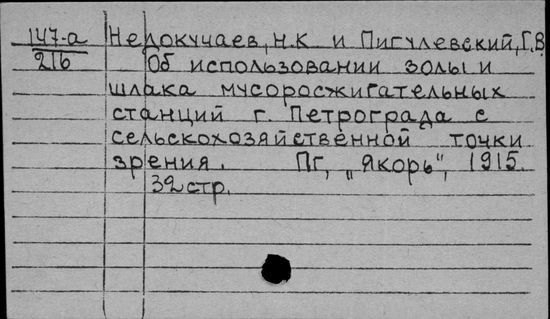 147-а Недокучаев, Н.К и Пигулевский, Г.В
216 Об использовании золы и
шлака мусоросжигательных
станций г. Петрограда с
сельскохозяйственной точки
зрения. Пг, „Якорь", 1915.
32 стр.